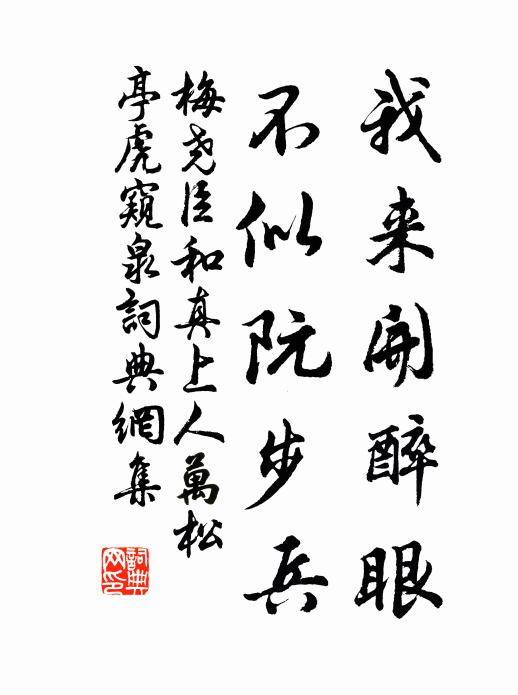 我来開醉眼
不似阮步兵
梅尧臣和真上人萬松
亭虎窺泉詞典網集
詞典网印